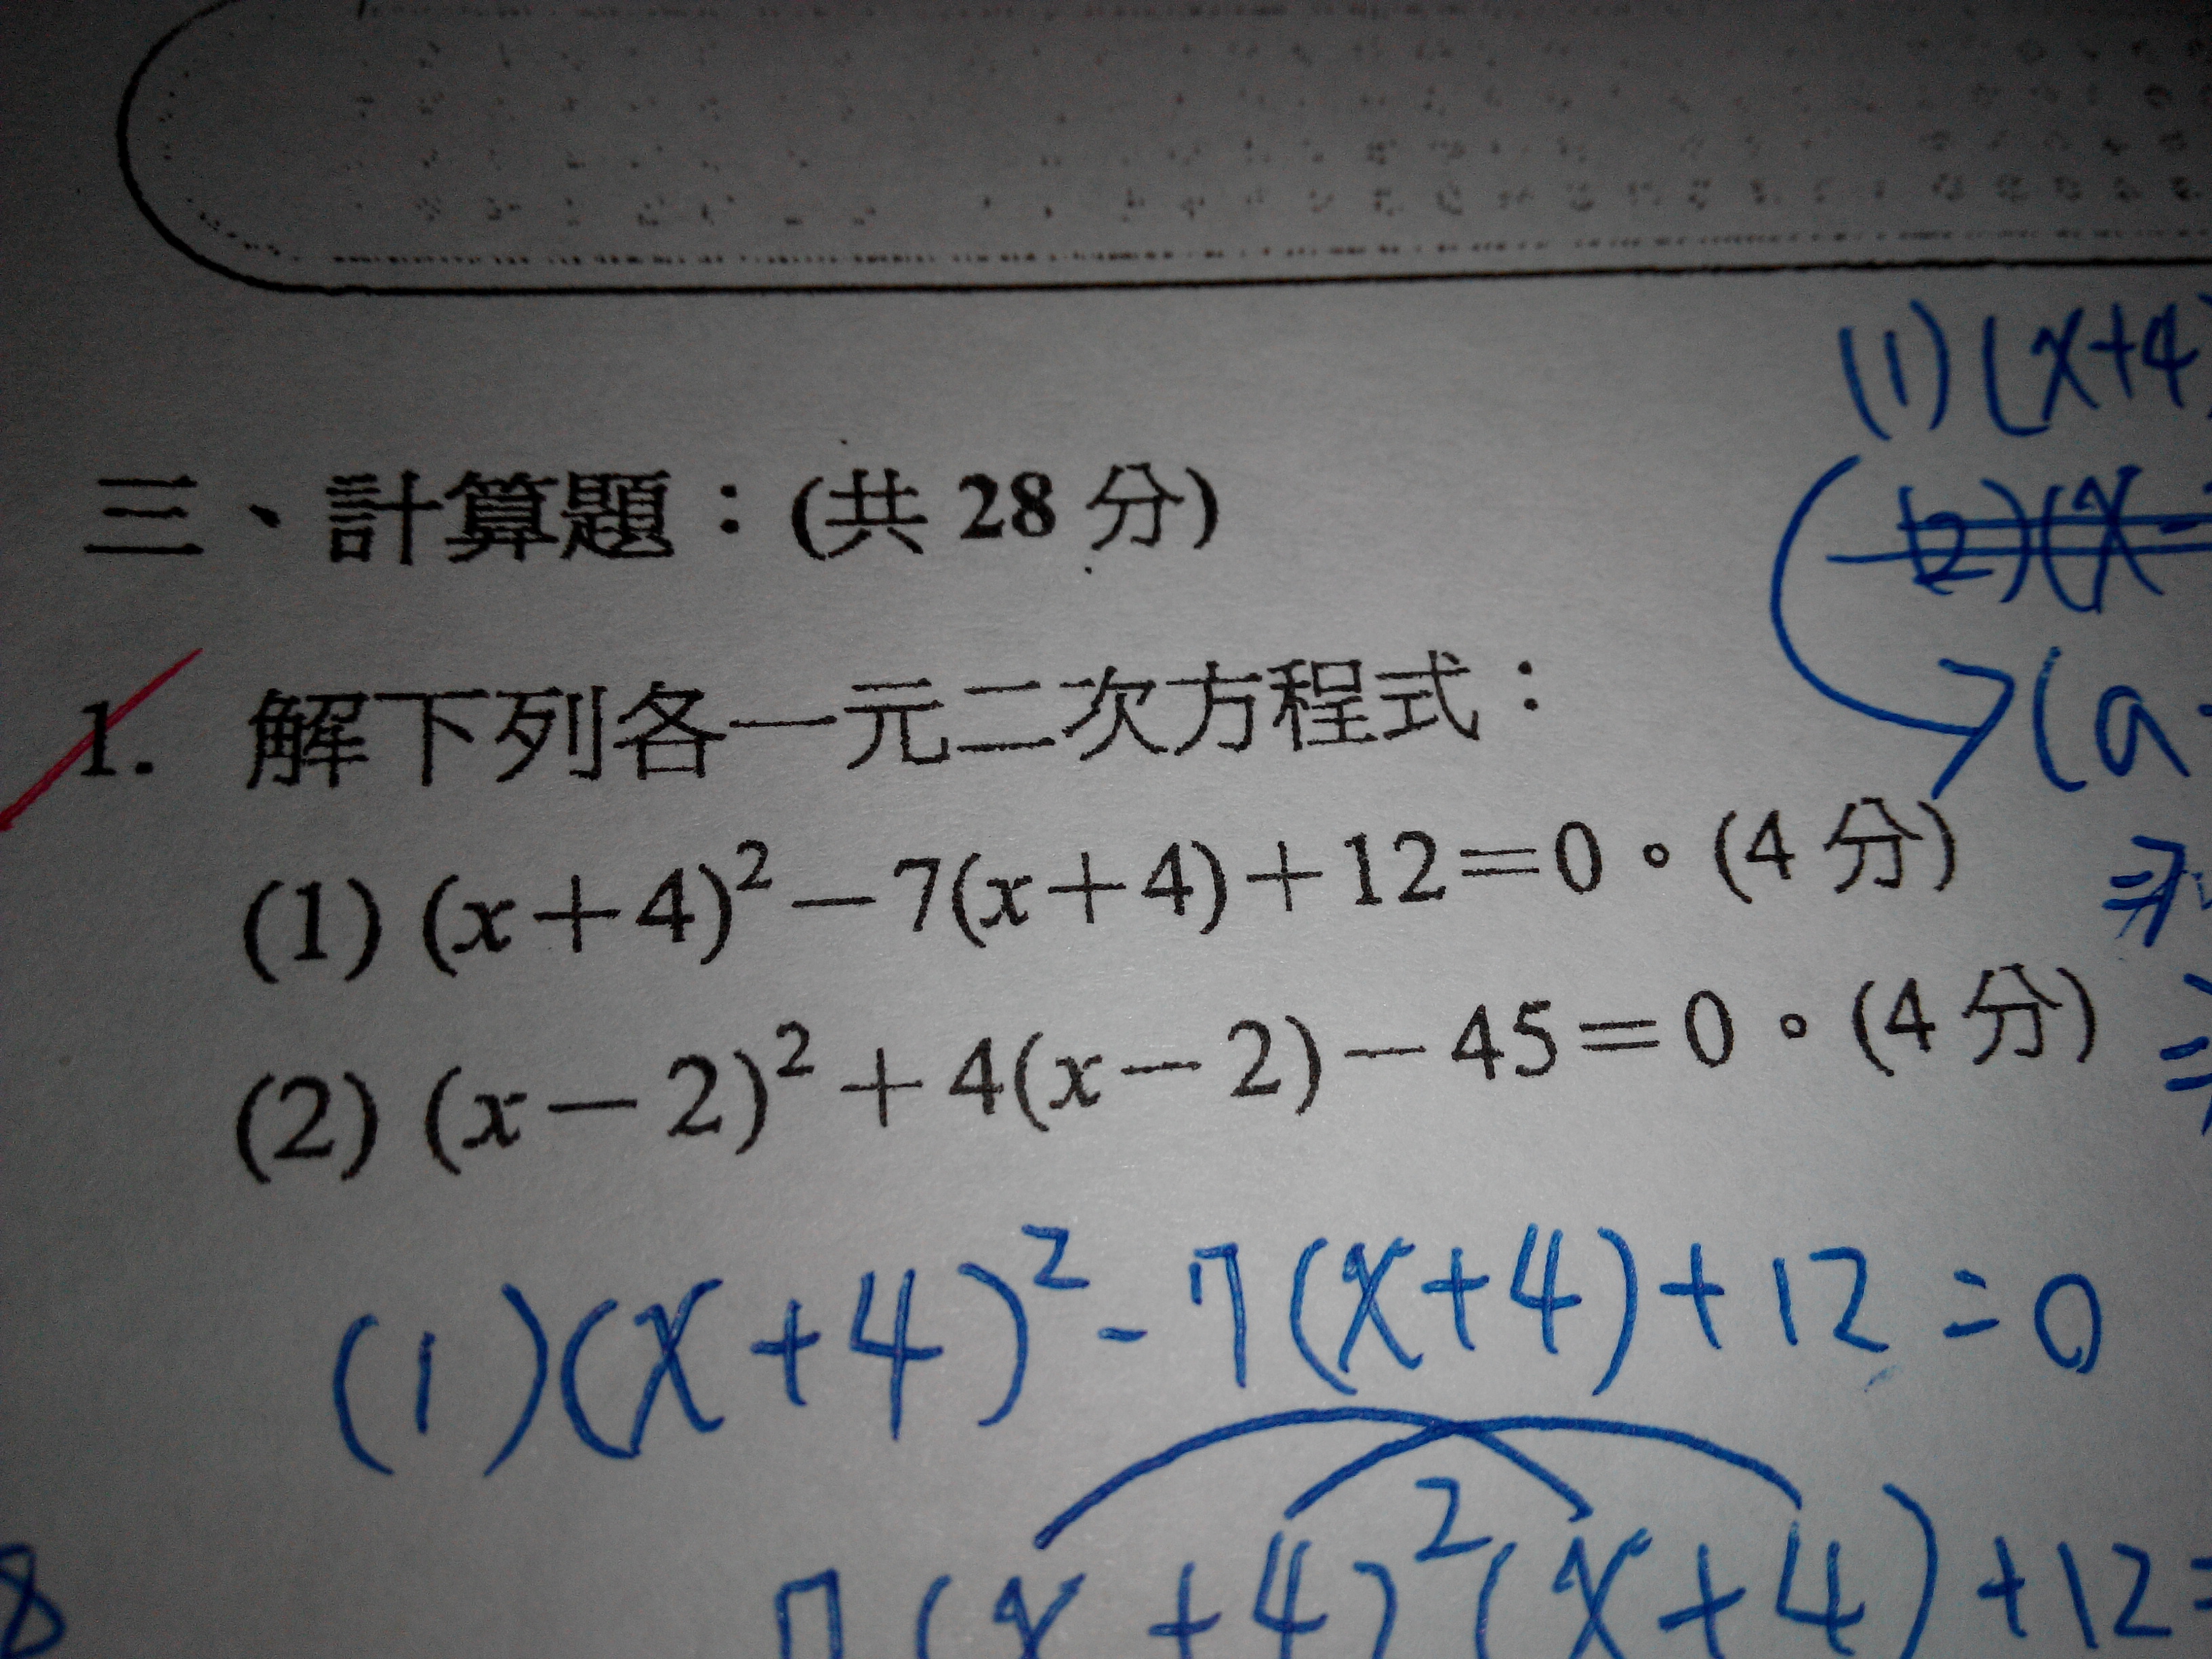 三、計算題：(共 28 分)
1. 解下列各一元二次方程式：
(1) (x＋4)²－7(x＋4)＋12＝0。(4 分)
(2) (x－2)²＋4(x－2)－45＝0。(4 分)
(1)(x+4)²-7(x+4)+12=0
7(x+4)²(x+4)+12=
8
(1)(x+4)
(2)(x-
(a